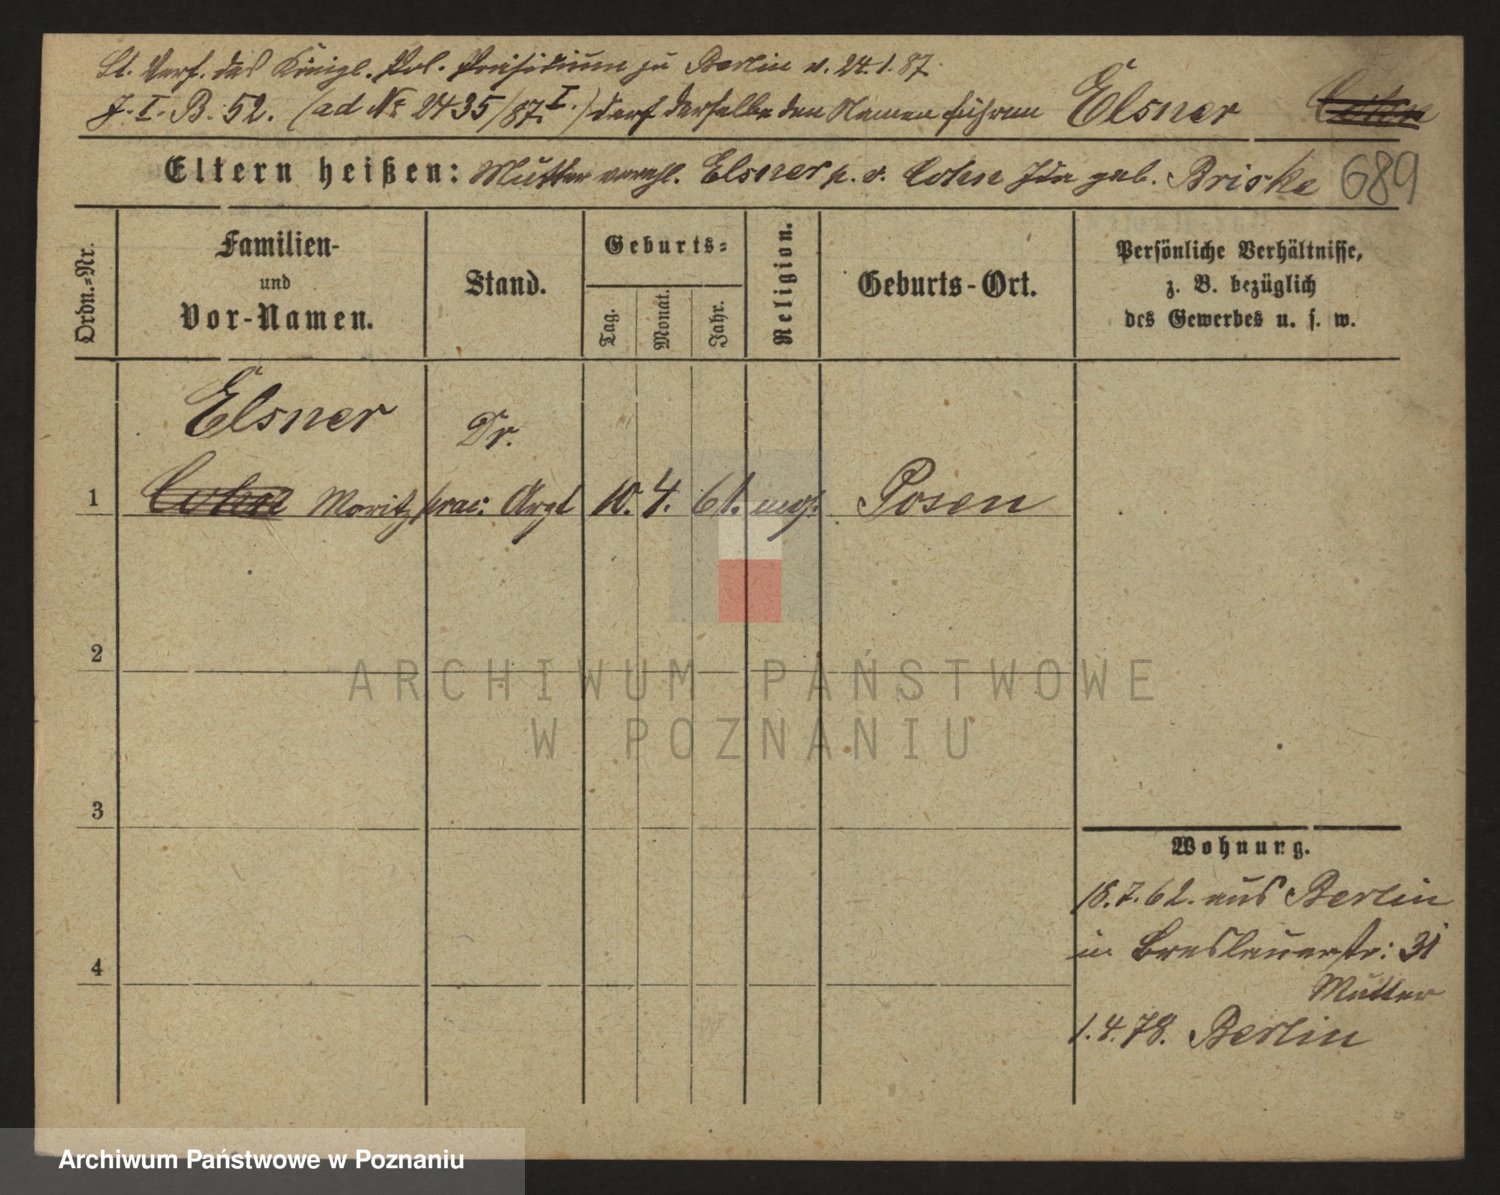 Lt. Verf. des Königl. Pol. Präsidium zu Berlin v. 24.1.87.
J. I. B. 52. (ad № 2435/87 I.) darf derselbe den Namen führen Elsner Cohn
Eltern heißen: Mutter verehl. Elsner p. v. Cohn Ida geb. Briske 689
Ordn.=Nr.
Familien- und Vor-Namen.
Stand.
Geburts=
Tag.
Monat.
Jahr.
Religion.
Geburts-Ort.
Persönliche Verhältnisse,
z. B. bezüglich
des Gewerbes u. s. w.
Elsner Dr.
1 Cohn Moritz prac: Arzt 10. 4. 61. mos. Posen
2
3
4
Wohnung.
18.7.62. aus Berlin
in Breslauerstr: 31
Mutter
1.4.78. Berlin
ARCHIWUM PAŃSTWOWE
W POZNANIU
Archiwum Państwowe w Poznaniu